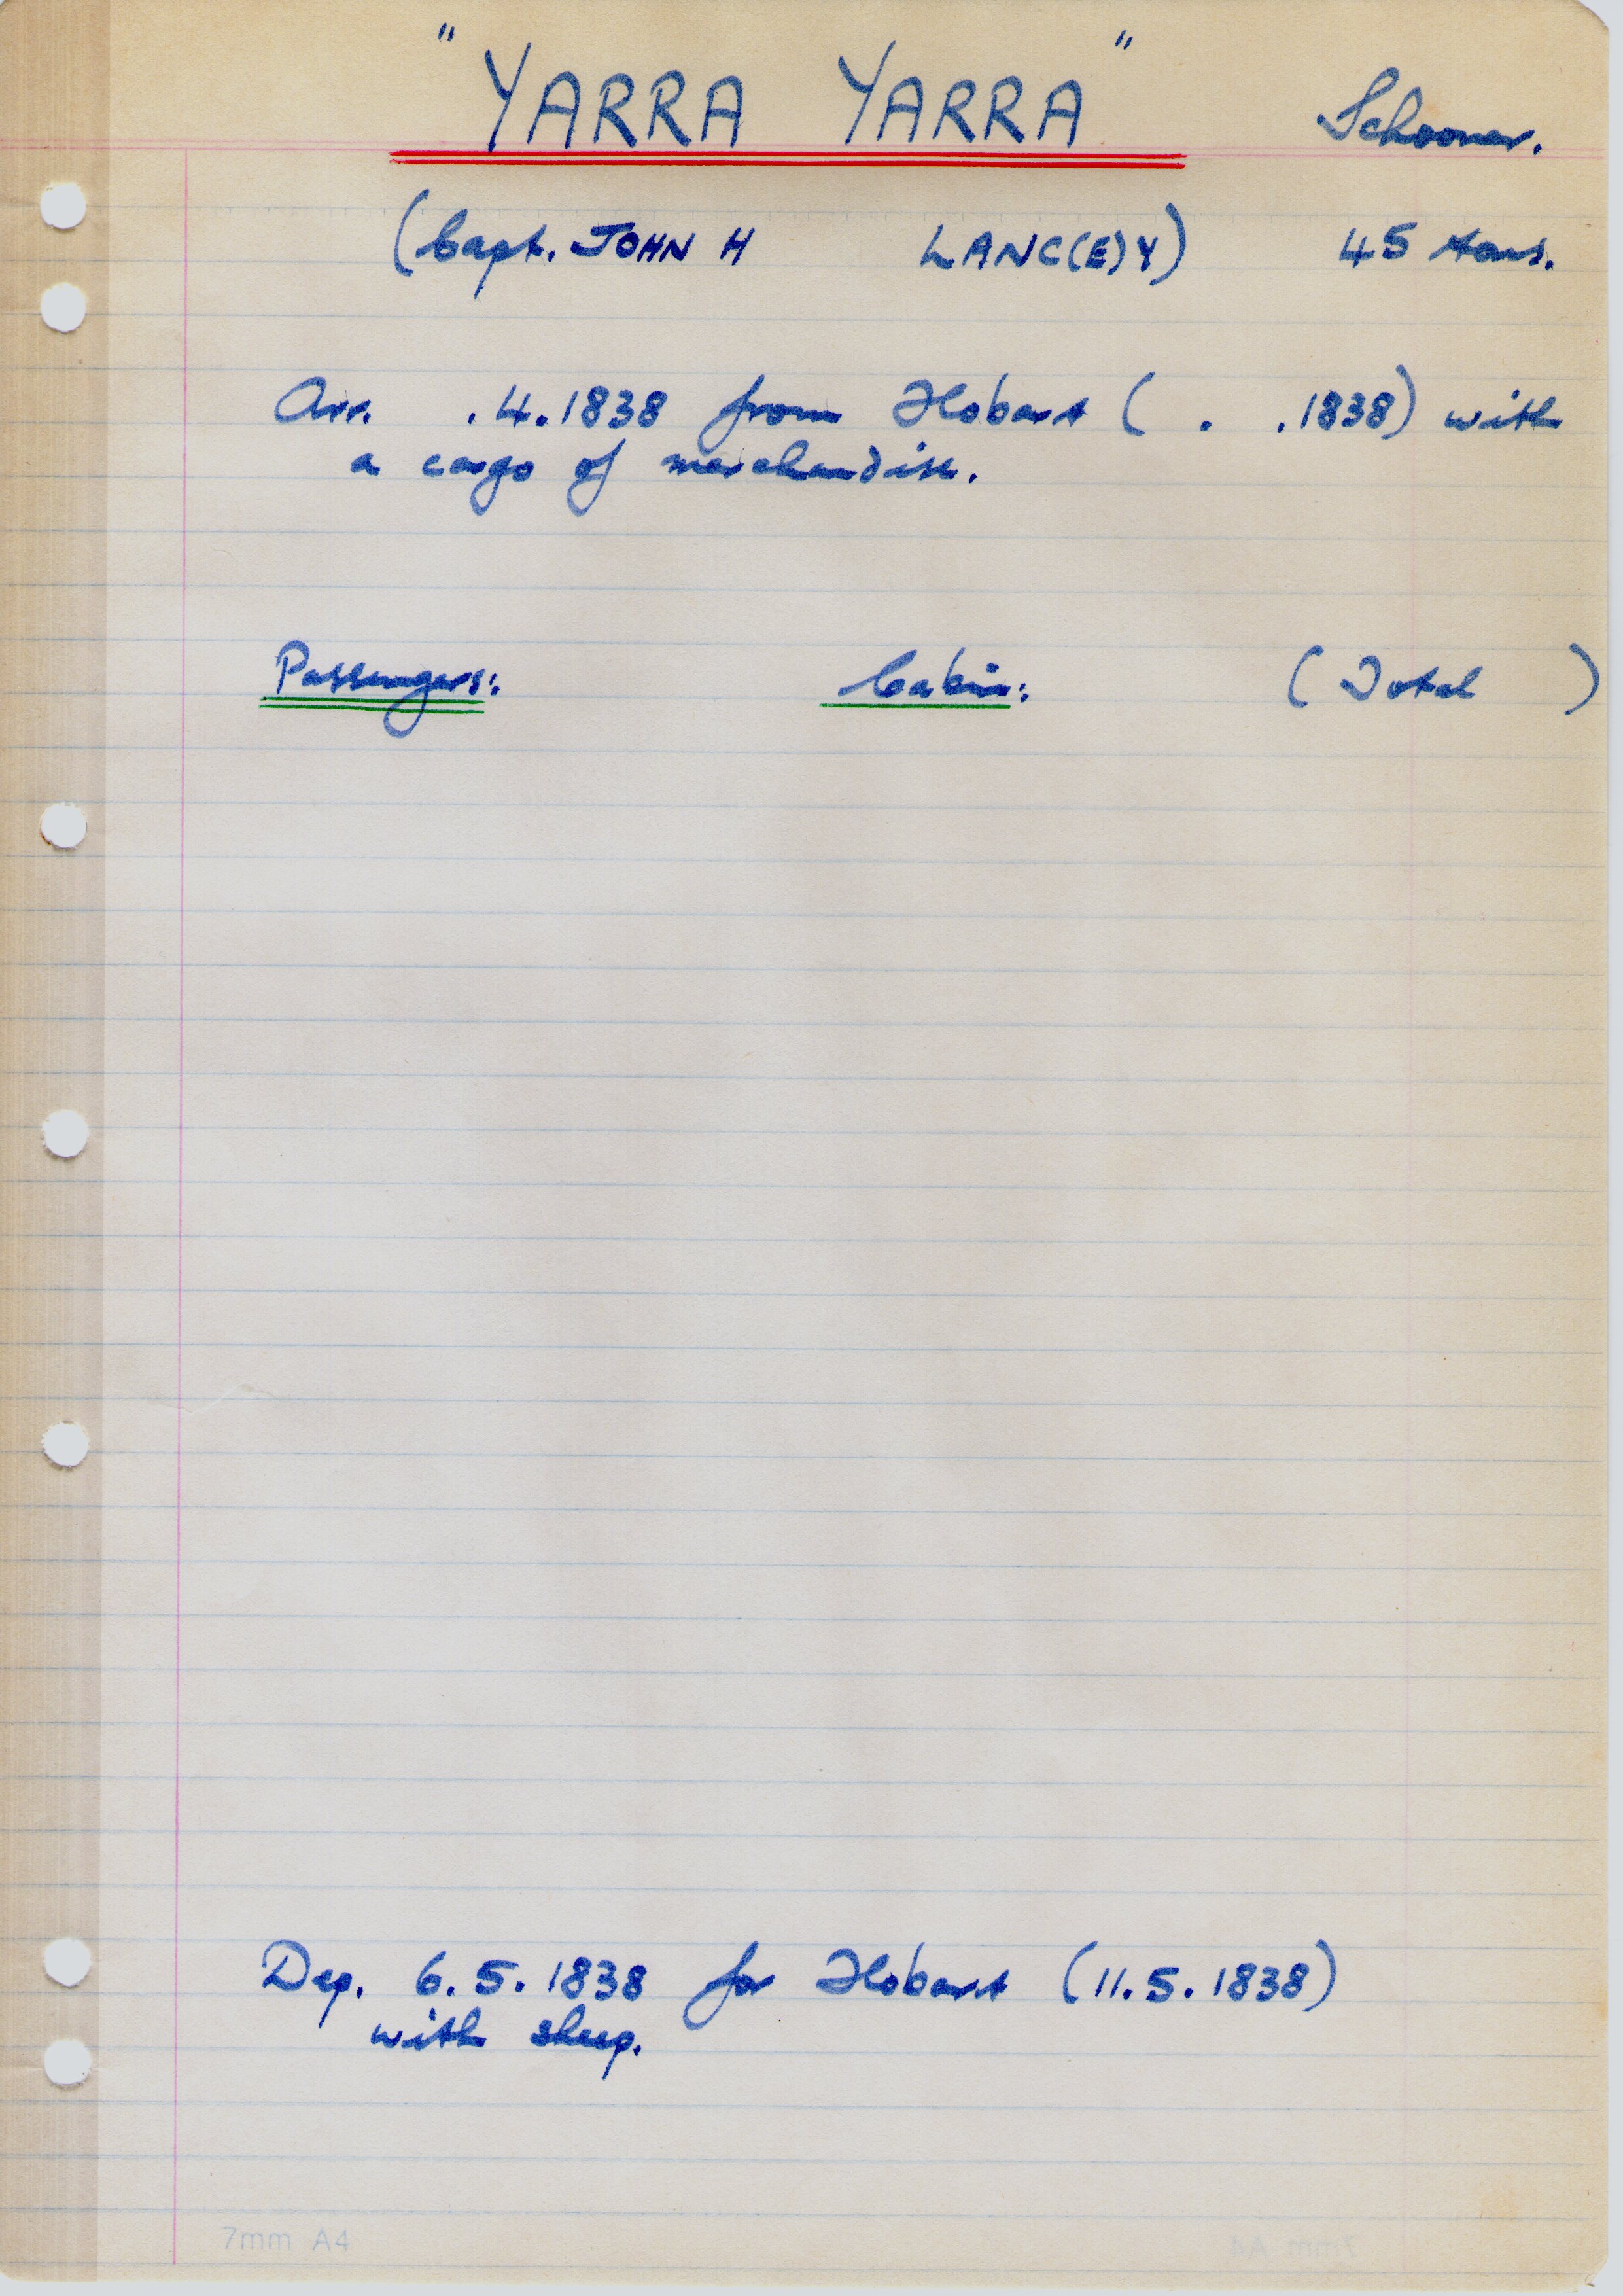 "YARRA YARRA" Schooner.
(Capt. JOHN H LANC(E)Y) 45 tons.
Arr. .4.1838 from Hobart ( . .1838) with
a cargo of merchandise.
Passengers: Cabin: (Total )
Dep. 6.5.1838 for Hobart (11.5.1838)
with sheep.
7mm A4